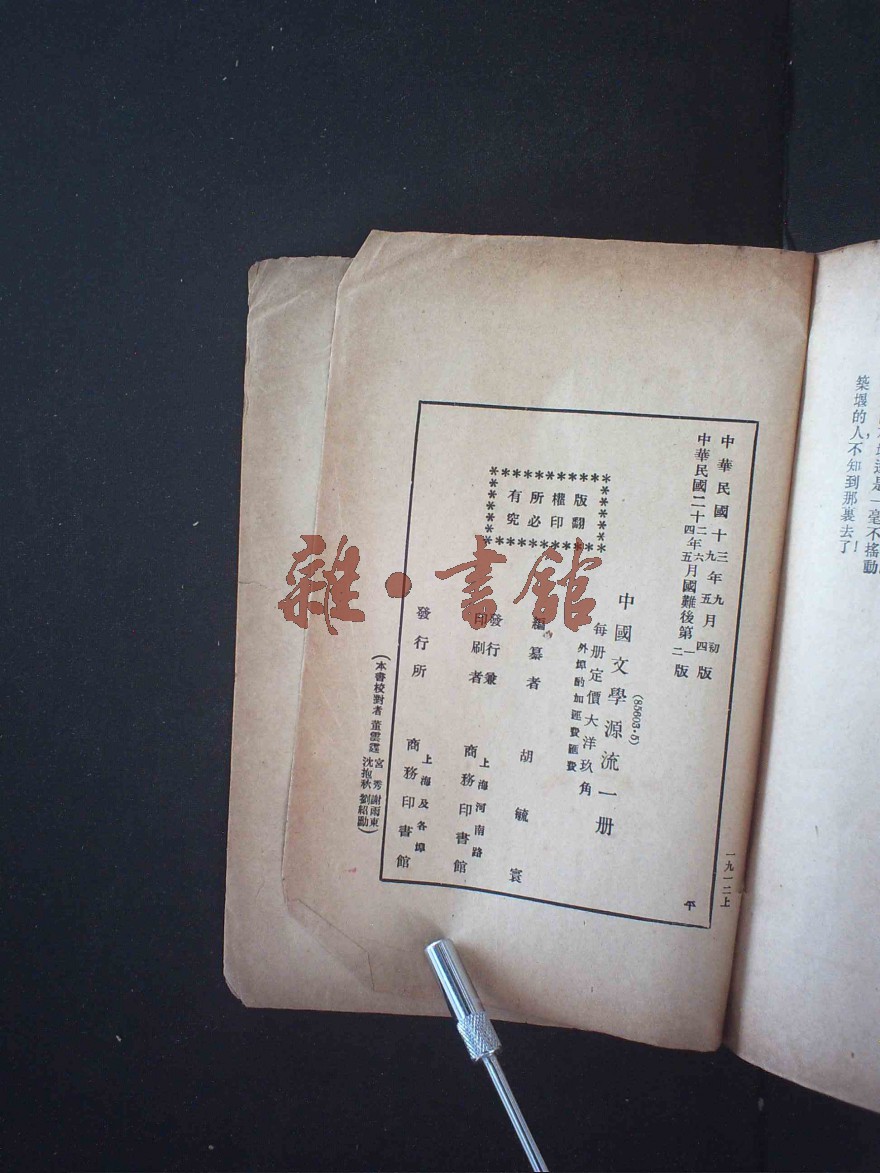 是一毫不搖動
築堰的人不知到那裏去了!
一九一二上
中華民國十三九年九五月初四版
中華民國二十二四年六五月國難後第一二版
平
(85603·5)
中國文學源流一册
每册定價大洋玖角
外埠酌加運費匯費
版權所有
翻印必究
編纂者 胡毓寰
發行兼印刷者 上海河南路 商務印書館
發行所 上海及各埠 商務印書館
(本書校對者 董雲霆 宮秀 謝雨東 沈抱秋 劉紹勳)
雜·書館